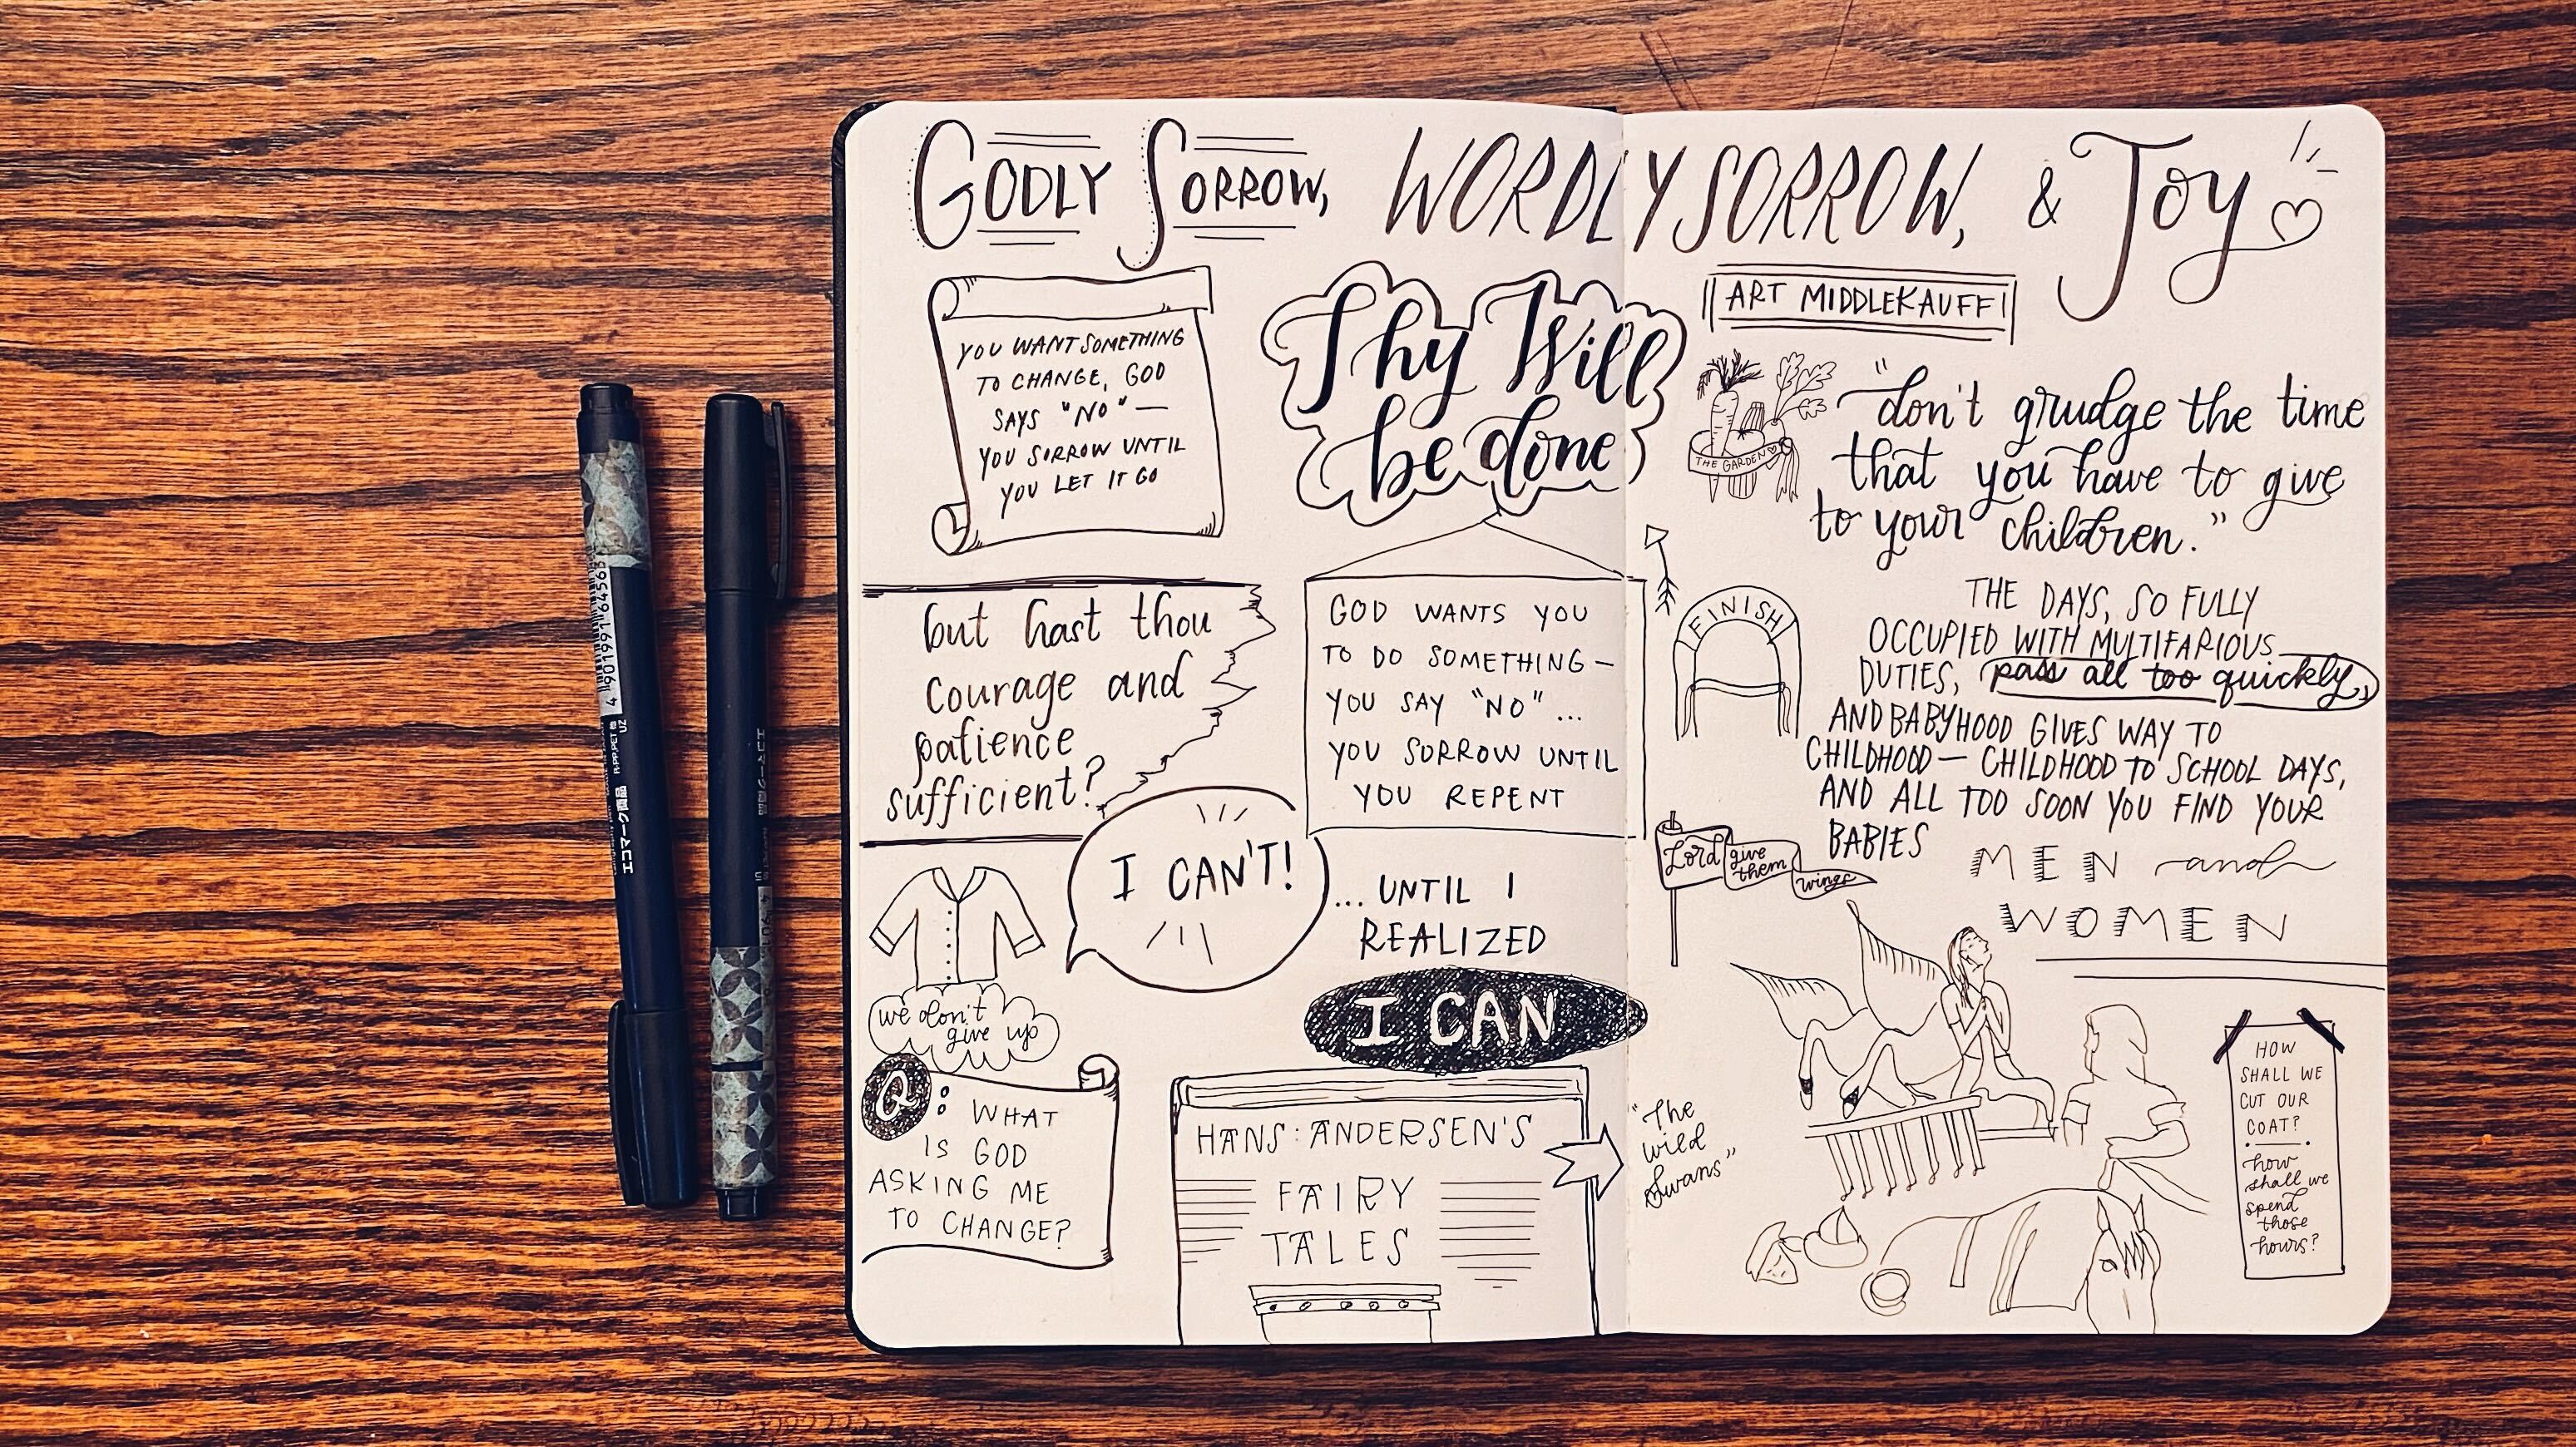 GODLY SORROW, WORDLY SORROW, & Joy
ART MIDDLEKAUFF
YOU WANT SOMETHING
TO CHANGE, GOD
SAYS "NO" —
YOU SORROW UNTIL
YOU LET IT GO
Thy Will
be done
but hast thou
courage and
patience
sufficient?
GOD WANTS YOU
TO DO SOMETHING —
YOU SAY "NO"...
YOU SORROW UNTIL
YOU REPENT
I CAN'T!
...UNTIL I
REALIZED
I CAN
we don't
give up
Q: WHAT
IS GOD
ASKING ME
TO CHANGE?
HANS ANDERSEN'S
FAIRY
TALES
"The
wild
Swans"
THE GARDEN
"don't grudge the time
that you have to give
to your children."
FINISH
THE DAYS, SO FULLY
OCCUPIED WITH MULTIFARIOUS
DUTIES, pass all too quickly,
AND BABYHOOD GIVES WAY TO
CHILDHOOD — CHILDHOOD TO SCHOOL DAYS,
AND ALL TOO SOON YOU FIND YOUR
BABIES
MEN and
WOMEN
Lord give
them
wings
HOW
SHALL WE
CUT OUR
COAT?
how
shall we
spend
those
hours?
4 901991 64563
エコマーク商品
エコマーク